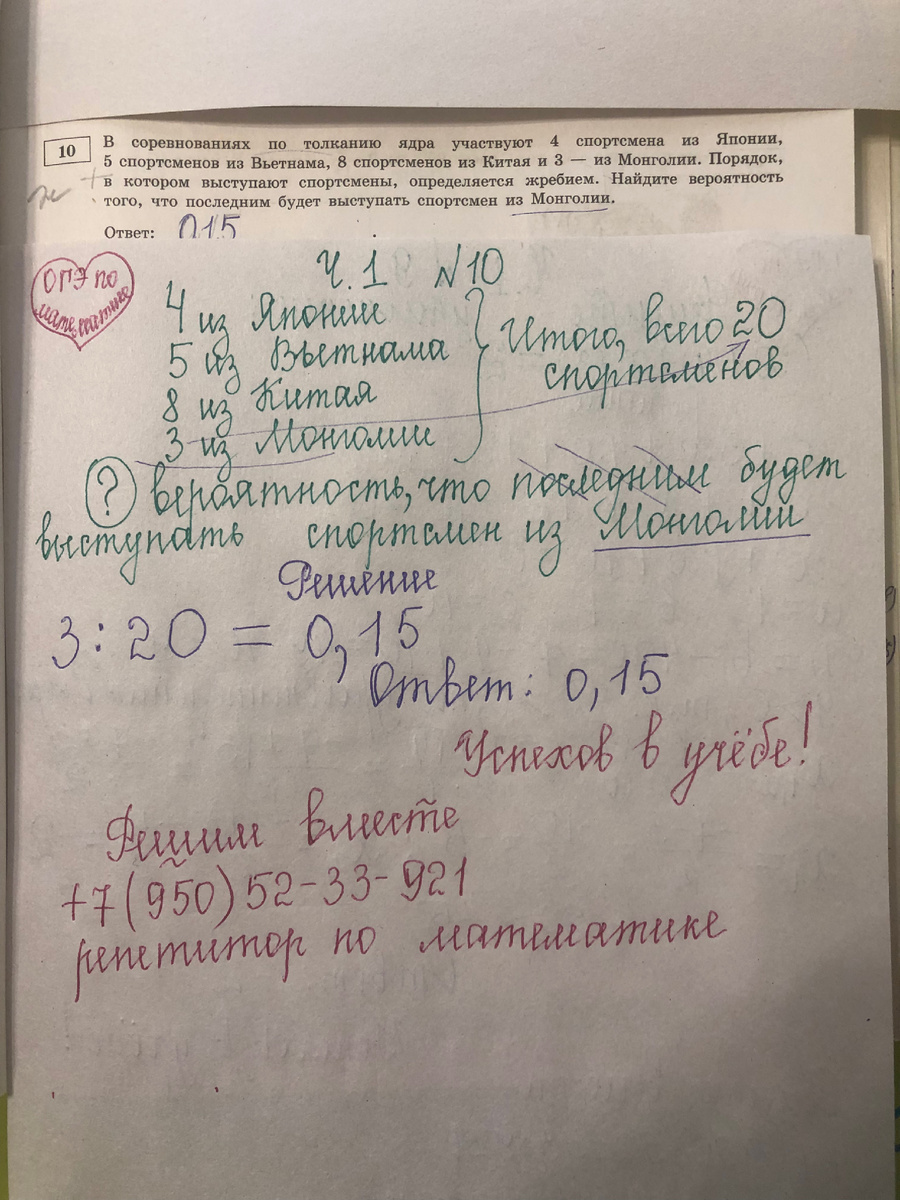 10
В соревнованиях по толканию ядра участвуют 4 спортсмена из Японии,
5 спортсменов из Вьетнама, 8 спортсменов из Китая и 3 — из Монголии. Порядок,
в котором выступают спортсмены, определяется жребием. Найдите вероятность
того, что последним будет выступать спортсмен из Монголии.
Ответ: 0,15
ОГЭ по
математике
Ч.1 №10
4 из Японии
5 из Вьетнама
8 из Китая
3 из Монголии
Итого, всего 20
спортсменов
? вероятность, что последним будет
выступать спортсмен из Монголии
Решение
3:20 = 0,15
Ответ: 0,15
Успехов в учёбе!
Решим вместе
+7(950)52-33-921
репетитор по математике